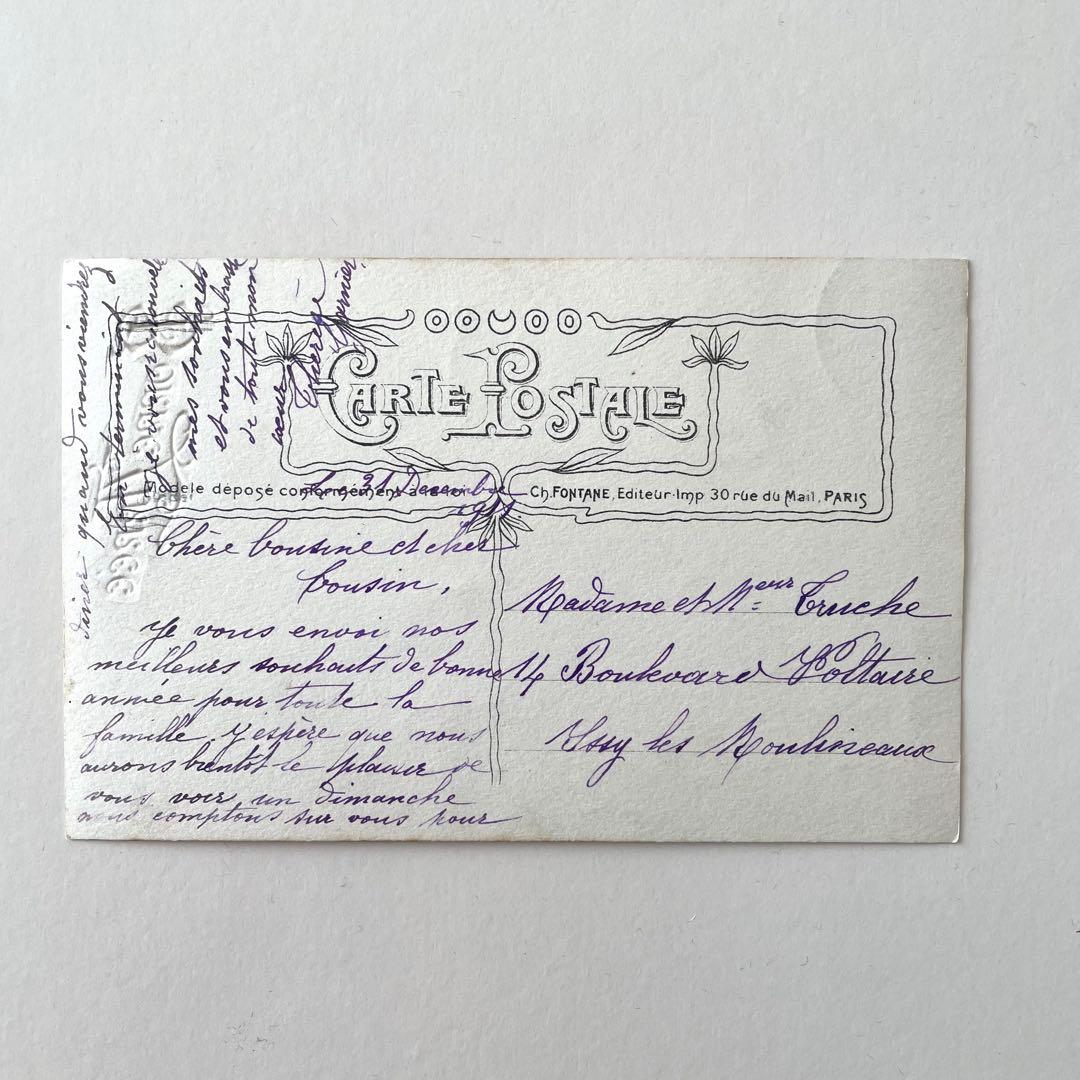 CARTE POSTALE
Modele déposé conformément à la loi
Ch. FONTANE, Editeur-Imp 30 rue du Mail, PARIS
Le 31 Décembre
1911
Chère Cousine et cher
Cousin,
Je vous envoi nos
meilleurs souhaits de bonne
année pour toute la
famille. J'espère que nous
aurons bientôt le plaisir de
vous voir un dimanche
nous comptons sur vous pour
diner quand vous viendrez
En terminant
je vous renouvelle
mes souhaits
et vous embrasse
de tout mon
cœur
Thérèse
Madame et Meur Truche
14 Boulevard Voltaire
Issy les Moulineaux